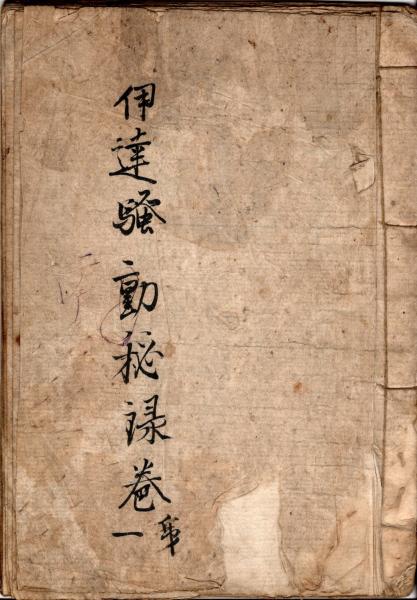 伊達騒動秘録巻一